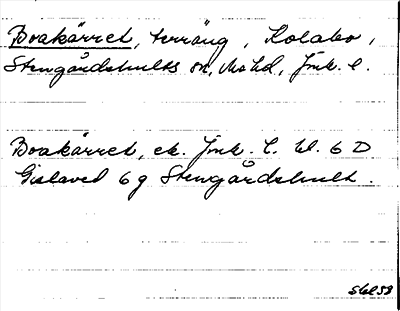 Boakärret, terräng, Kolabo,
Stengårdshults sn, Mo hd, Jmk. l.
Boakärret, ek. Jmk. l. bl. 6 D
Gislaved 6 g Stengårdshult.